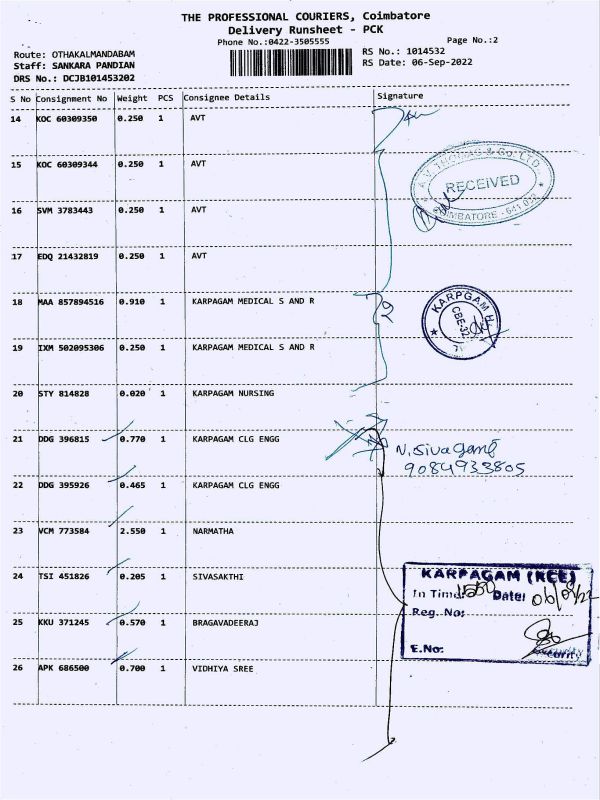 THE PROFESSIONAL COURIERS, Coimbatore
Delivery Runsheet - PCK
Phone No.:0422-3505555
Page No.:2
Route: OTHAKALMANDABAM
Staff: SANKARA PANDIAN
DRS No.: DCJB101453202
RS No.: 1014532
RS Date: 06-Sep-2022
S No Consignment No Weight PCS Consignee Details Signature
14 KOC 60309350 0.250 1 AVT
15 KOC 60309344 0.250 1 AVT
A.V. THOMAS & Co. LTD.
RECEIVED
COIMBATORE - 641
16 SVM 3783443 0.250 1 AVT
17 EDQ 21432819 0.250 1 AVT
18 MAA 857894516 0.910 1 KARPAGAM MEDICAL S AND R
KARPGAM H
CBE-32
19 IXM 502095306 0.250 1 KARPAGAM MEDICAL S AND R
20 STY 814828 0.020 1 KARPAGAM NURSING
21 DDG 396815 0.770 1 KARPAGAM CLG ENGG
N. Sivagami
9084933805
22 DDG 395926 0.465 1 KARPAGAM CLG ENGG
23 VCM 773584 2.550 1 NARMATHA
24 TSI 451826 0.205 1 SIVASAKTHI
KARPAGAM (KCE)
In Time: Date: 06/09/22
Reg. No:
25 KKU 371245 0.570 1 BRAGAVADEERAJ
E.No: Security
26 APK 686500 0.700 1 VIDHIYA SREE